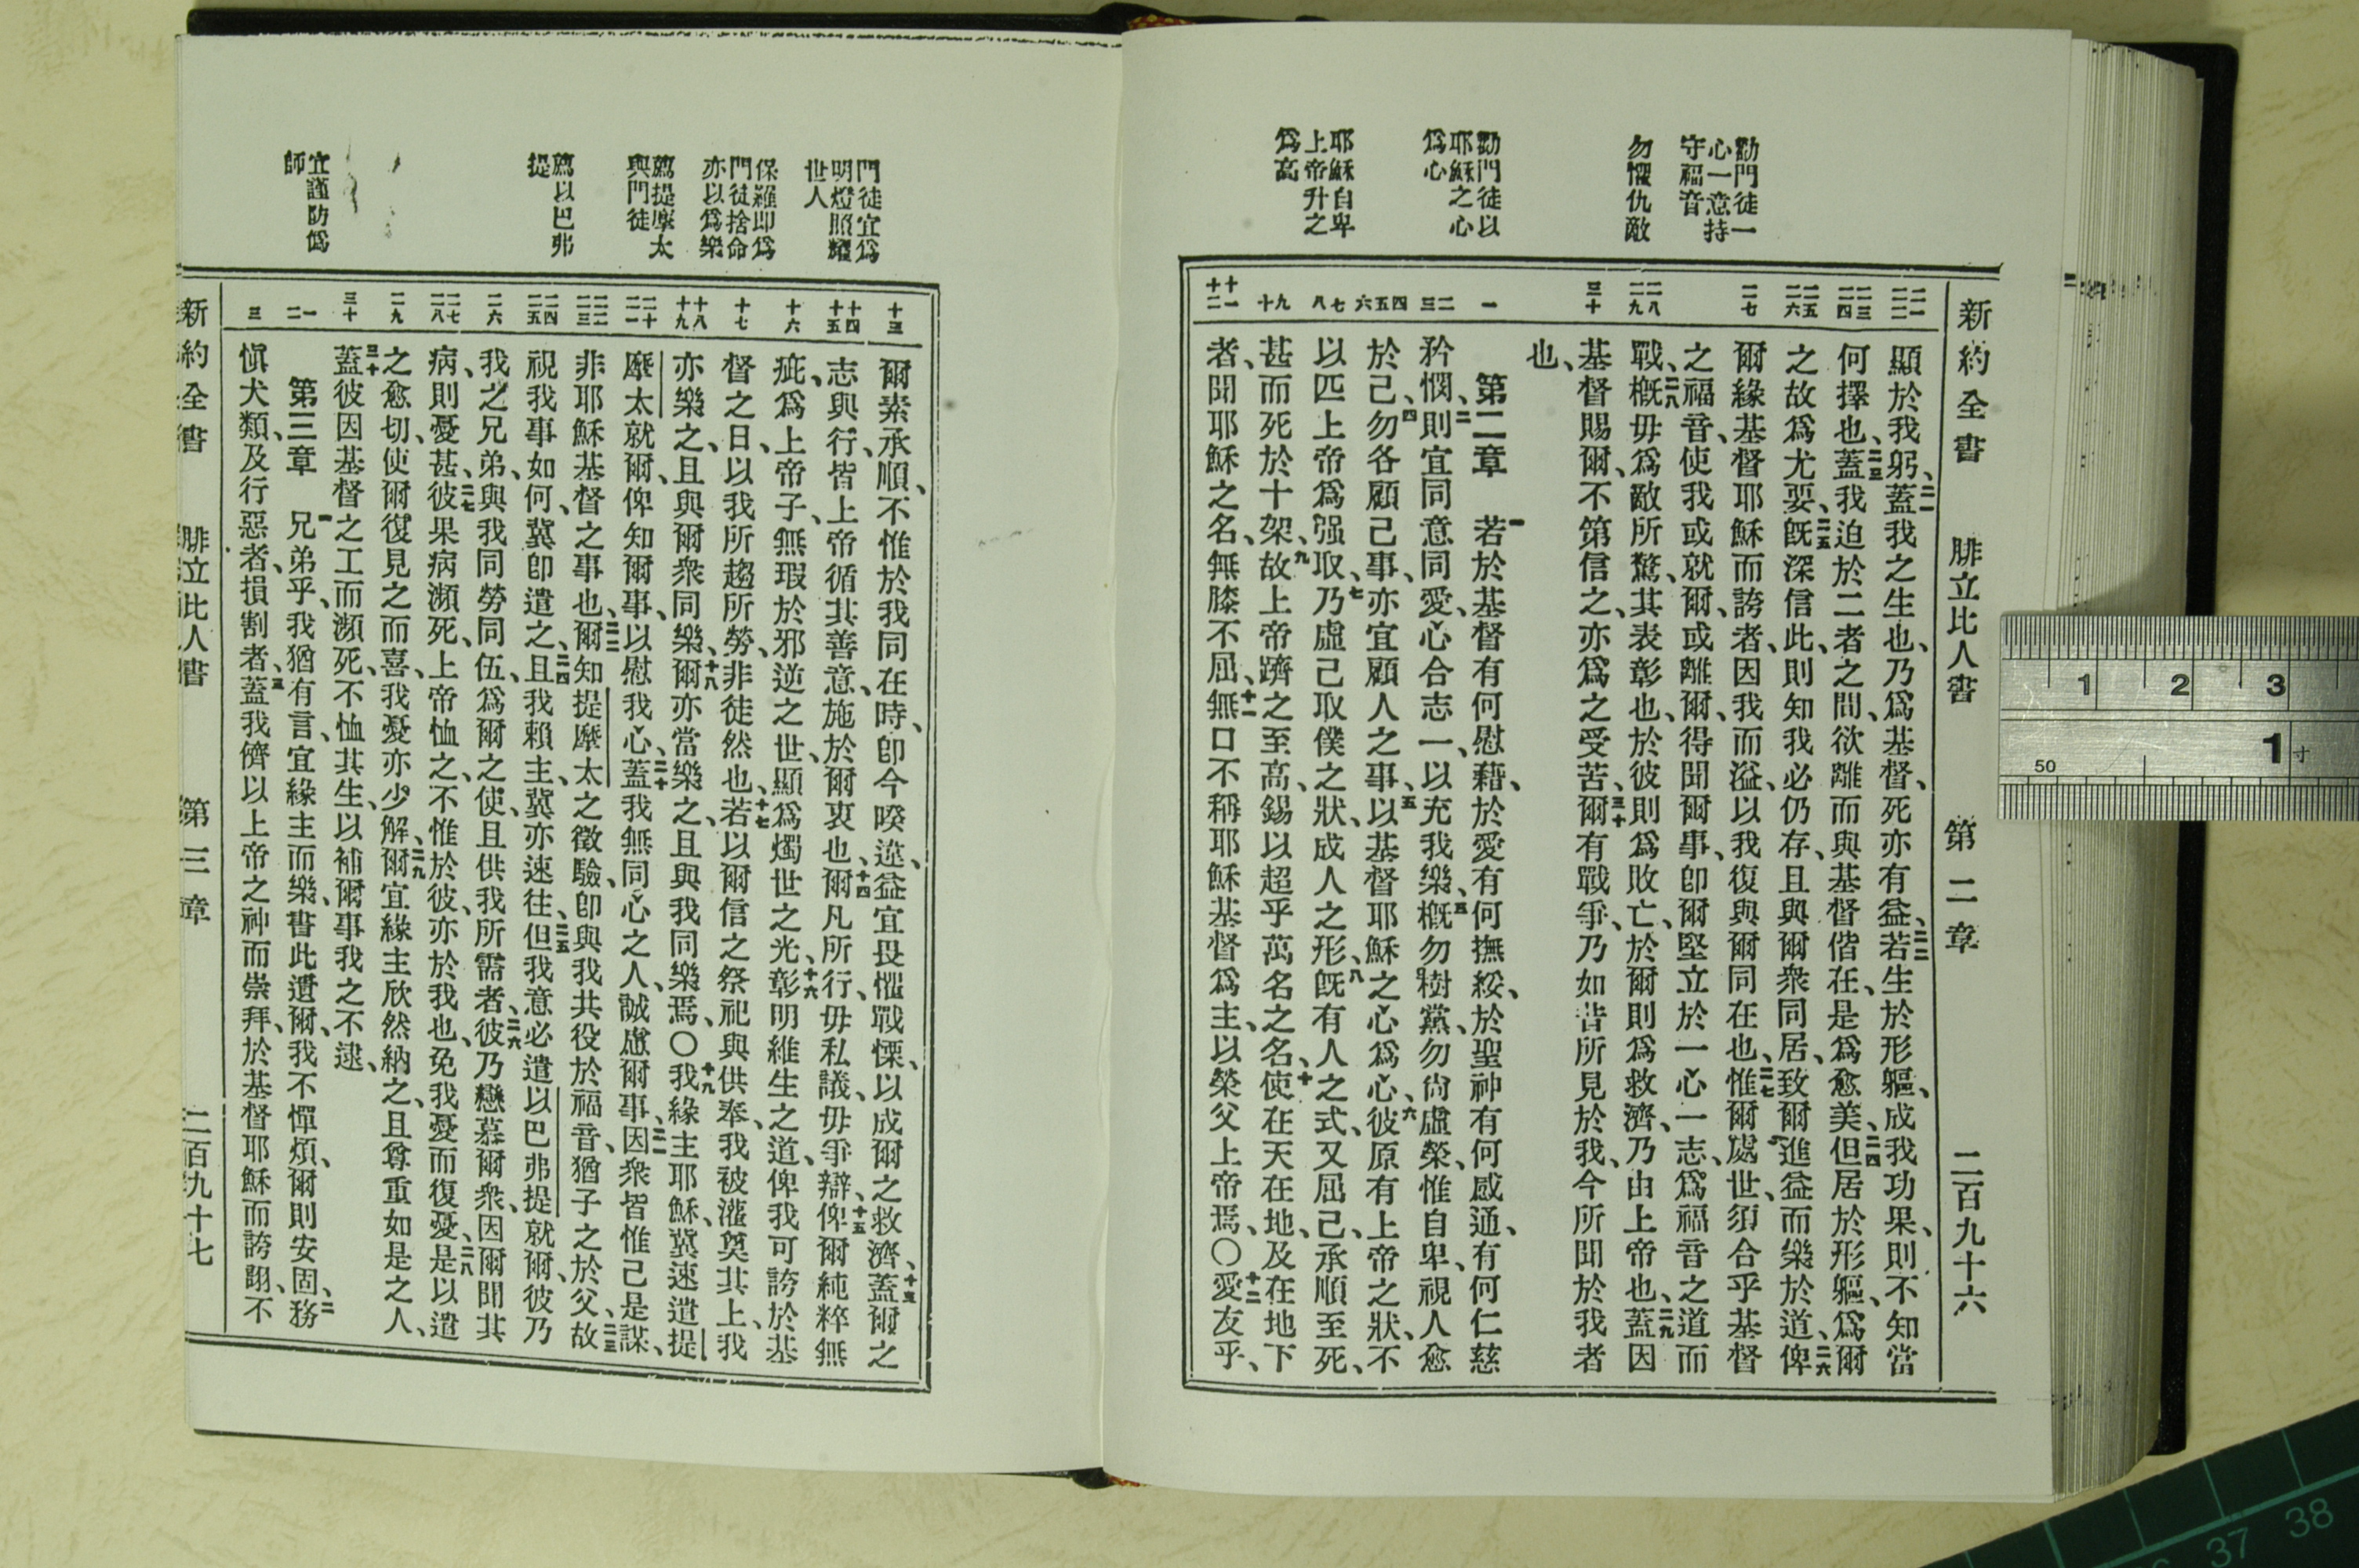 新約全書 腓立比人書 第二章 二百九十六
勸門徒一
心一意持
守福音
勿懼仇敵
勸門徒以
耶穌之心
爲心
耶穌自卑
上帝升之
爲高
二一 二二
二三 二四
二五 二六
二七
三十
二八 二九
一
二 三
四 五 六
七 八
九 十
十一 十二
顯於我躬、二一蓋我之生也、乃爲基督、死亦有益、二二若生於形軀、成我功果、則不知當
何擇也、二三蓋我迫於二者之間、欲離而與基督偕在、是爲愈美、二四但居於形軀、爲爾
之故爲尤要、二五旣深信此、則知我必仍存、且與爾衆同居、致爾進益而樂於道、二六俾
爾緣基督耶穌而誇者、因我而溢、以我復與爾同在也、二七惟爾處世、須合乎基督
之福音、使我或就爾、或離爾、得聞爾事、卽爾堅立於一心一志、爲福音之道而
戰、二八槪毋爲敵所驚、其表彰也、於彼則爲敗亡、於爾則爲救濟、乃由上帝也、二九蓋因
基督賜爾、不第信之、亦爲之受苦、三十爾有戰爭、乃如昔所見於我、今所聞於我者
也、
第二章 一若於基督有何慰藉、於愛有何撫綏、於聖神有何感通、有何仁慈
矜憫、二則宜同意同愛、心合志一、以充我樂、三槪勿樹黨、勿尙虛榮、惟自卑、視人愈
於己、四勿各顧己事、亦宜顧人之事、五以基督耶穌之心爲心、六彼原有上帝之狀、不
以匹上帝爲强取、七乃虛己取僕之狀、成人之形、八旣有人之式、又屈己、承順至死、
甚而死於十架、九故上帝躋之至高、錫以超乎萬名之名、十使在天在地、及在地下
者、聞耶穌之名、無膝不屈、十一無口不稱耶穌基督爲主、以榮父上帝焉、〇十二愛友乎、
門徒宜爲
明燈照耀
世人
保羅卽爲
門徒捨命
亦以爲樂
薦提摩太
與門徒
薦以巴弗
提
宜謹防僞
師
十三
十四 十五
十六
十七
十八 十九
二十 二一
二二 二三
二四 二五
二六
二七 二八
二九
三十
一 二
三
爾素承順、不惟於我同在時、卽今暌違、益宜畏懼戰慄、以成爾之救濟、十三蓋爾之
志與行、皆上帝循其善意、施於爾衷也、十四爾凡所行、毋私議、毋爭辯、十五俾爾純粹無
疵、爲上帝子、無瑕於邪逆之世、顯爲燭世之光、十六彰明維生之道、俾我可誇於基
督之日、以我所趨所勞、非徒然也、十七若以爾信之祭祀與供奉、我被灌奠其上、我
亦樂之、且與爾衆同樂、十八爾亦當樂之、且與我同樂焉、〇十九我緣主耶穌、冀速遣提
摩太就爾、俾知爾事、以慰我心、二十蓋我無同心之人、誠慮爾事、二一因衆皆惟己是謀、
非耶穌基督之事也、二二爾知提摩太之徵驗、卽與我共役於福音、猶子之於父、二三故
視我事如何、冀卽遣之、二四且我賴主、冀亦速往、二五但我意必遣以巴弗提就爾、彼乃
我之兄弟、與我同勞同伍、爲爾之使、且供我所需者、二六彼乃戀慕爾衆、因爾聞其
病、則憂甚、二七彼果病瀕死、上帝恤之、不惟於彼、亦於我也、免我憂而復憂、二八是以遣
之愈切、使爾復見之而喜、我憂亦少解、二九爾宜緣主欣然納之、且尊重如是之人、
三十蓋彼因基督之工而瀕死、不恤其生、以補爾事我之不逮、
第三章 一兄弟乎、我猶有言、宜緣主而樂、書此遺爾、我不憚煩、爾則安固、二務
愼犬類、及行惡者、損割者、三蓋我儕以上帝之神而崇拜、於基督耶穌而誇詡、不
新約全書 腓立比人書 第三章 二百九十七
1 2 3
1寸
50
37 38